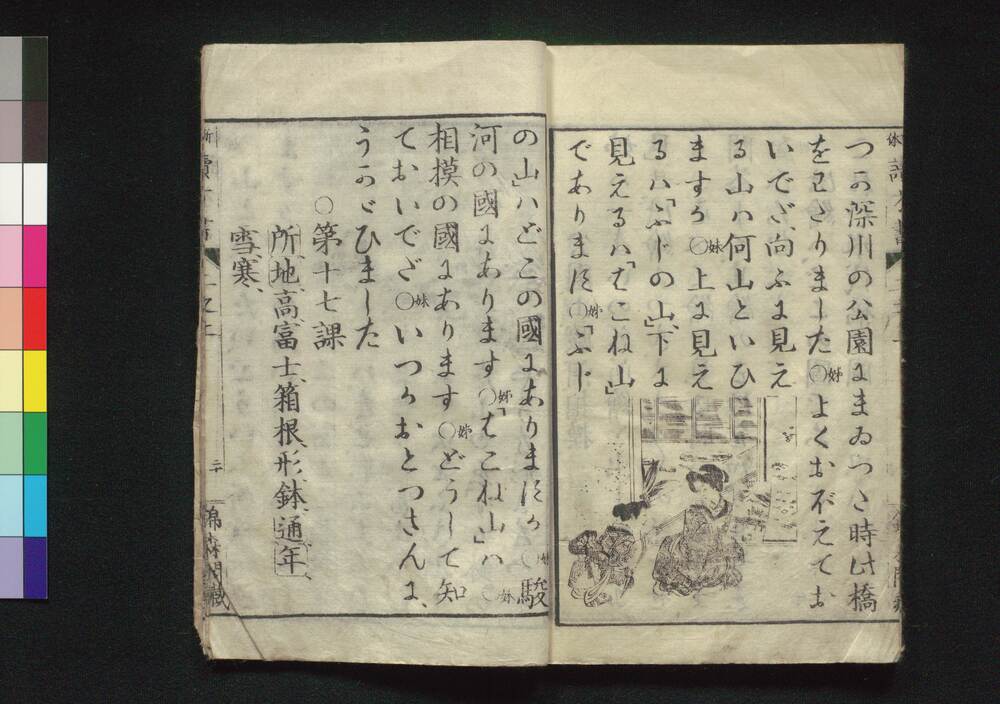 つか深川の公園にまゐつた時此橋
をわたりました○姉よくお不えてお
いでだ、向ふに見え
る山ハ何山といひ
ますか○妹上に見え
るハ「ふじの山」下に
見えるハ「はこね山」
であります○姉「ふじ
の山」ハどこの國にありますか○妹駿
河の國にあります○姉「はこね山」ハ○妹
相摸の國にあります○姉どうして知
ておいでだ○妹いつかおとつさんに、
うかゞひました
○第十七課
所、地、高、富士、箱根、形、鉢、通、年、
雪、寒、
二十